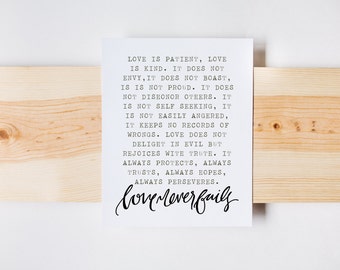 LOVE IS PATIENT, LOVE
IS KIND. IT DOES NOT
ENVY,IT DOES NOT BOAST,
IS IS NOT PROUD. IT DOES
NOT DISHONOR OTHERS. IT
IS NOT SELF SEEKING, IT
IS NOT EASILY ANGERED,
IT KEEPS NO RECORDS OF
WRONGS. LOVE DOES NOT
DELIGHT IN EVIL BUT
REJOICES WITH TRUTH. IT
ALWAYS PROTECTS, ALWAYS
TRUSTS, ALWAYS HOPES,
ALWAYS PERSEVERES.
love never fails